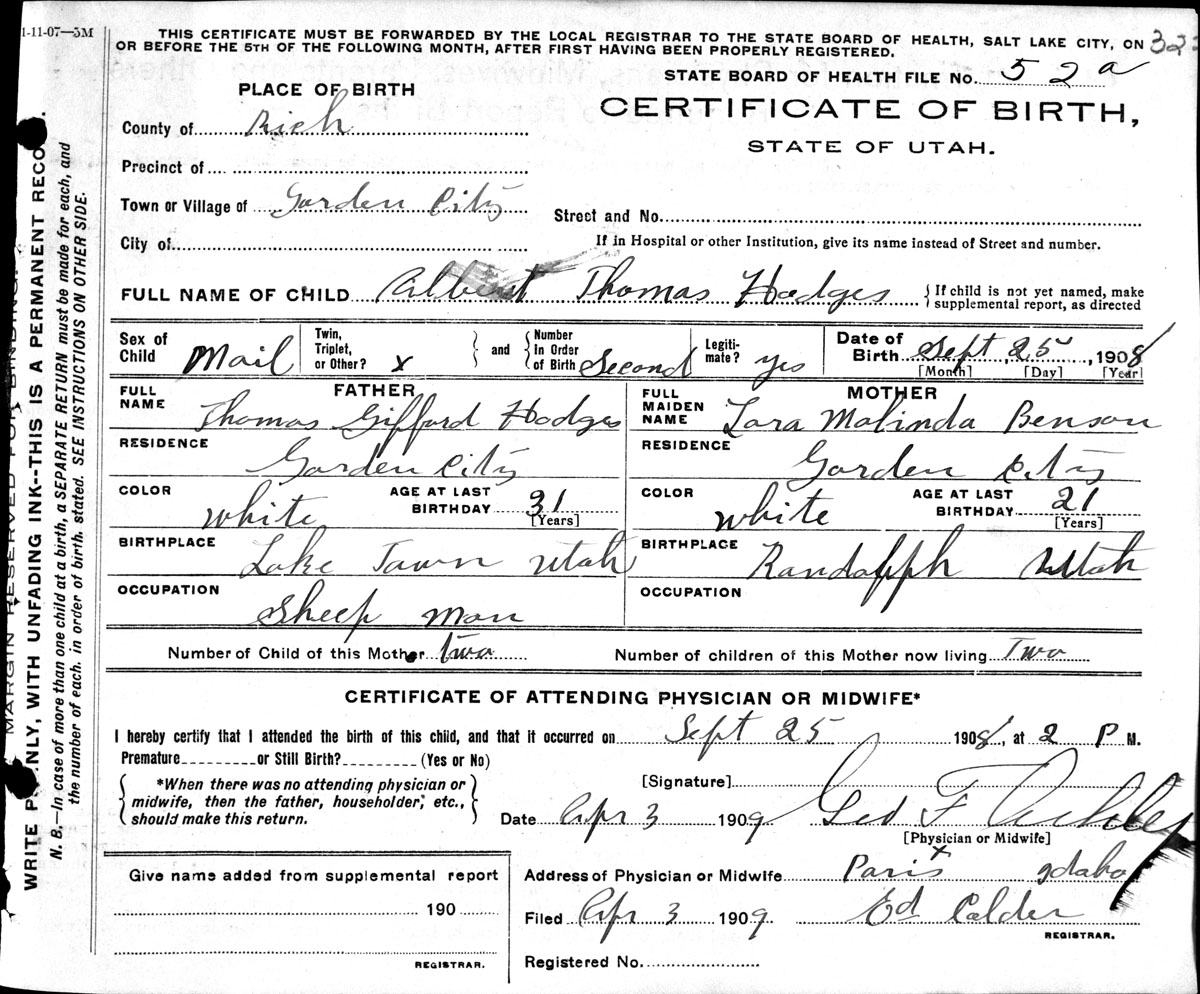 1-11-07—5M
THIS CERTIFICATE MUST BE FORWARDED BY THE LOCAL REGISTRAR TO THE STATE BOARD OF HEALTH, SALT LAKE CITY, ON
OR BEFORE THE 5TH OF THE FOLLOWING MONTH, AFTER FIRST HAVING BEEN PROPERLY REGISTERED.
STATE BOARD OF HEALTH FILE No. 52a
PLACE OF BIRTH
CERTIFICATE OF BIRTH,
STATE OF UTAH.
County of Rich
Precinct of
Town or Village of Garden City
Street and No.
City of
If in Hospital or other Institution, give its name instead of Street and number.
FULL NAME OF CHILD Albert Thomas Hodges
{ If child is not yet named, make
supplemental report, as directed
Sex of Child Mail
Twin, Triplet, or Other? x
and
Number In Order of Birth Second
Legiti-mate? yes
Date of Birth Sept 25, 1908
[Month] [Day] [Year]
FATHER
FULL NAME Thomas Gifford Hodges
RESIDENCE Garden City
COLOR white
AGE AT LAST BIRTHDAY 31
[Years]
BIRTHPLACE Lake Town Utah
OCCUPATION Sheep Man
MOTHER
FULL MAIDEN NAME Lara Malinda Benson
RESIDENCE Garden City
COLOR white
AGE AT LAST BIRTHDAY 21
[Years]
BIRTHPLACE Randolph Utah
OCCUPATION
Number of Child of this Mother two
Number of children of this Mother now living Two
CERTIFICATE OF ATTENDING PHYSICIAN OR MIDWIFE*
I hereby certify that I attended the birth of this child, and that it occurred on Sept 25 1908, at 2 P M.
Premature or Still Birth? (Yes or No)
{ *When there was no attending physician or
midwife, then the father, householder, etc.,
should make this return. }
[Signature] Geo F
Date Apr 3 1909
[Physician or Midwife]
Give name added from supplemental report
190
REGISTRAR.
Address of Physician or Midwife Paris x Idaho
Filed Apr 3 1909 Ed Calder
REGISTRAR.
Registered No.
MARGIN RESERVED FOR BINDING.
WRITE PLAINLY, WITH UNFADING INK--THIS IS A PERMANENT RECORD.
N. B.—In case of more than one child at a birth, a SEPARATE RETURN must be made for each, and
the number of each, in order of birth, stated. SEE INSTRUCTIONS ON OTHER SIDE.